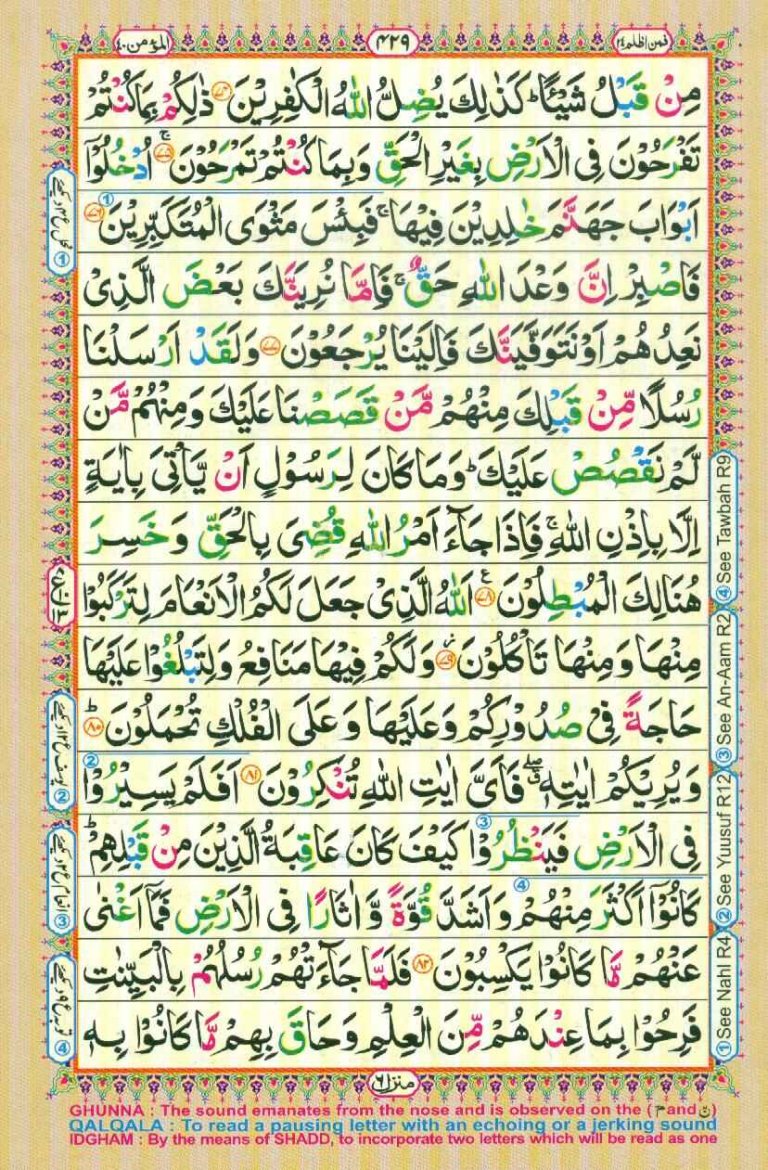 المؤمن ٤٠
٤٢٩
فمن اظلم ٢٤
مِنْ قَبْلُ شَيْـًٔا ؕ كَذٰلِكَ يُضِلُّ اللّٰهُ الْكٰفِرِيْنَ ﴿۷۴﴾ ذٰلِكُمْ بِمَا كُنْتُمْ
تَفْرَحُوْنَ فِى الْاَرْضِ بِغَيْرِ الْحَقِّ وَبِمَا كُنْتُمْ تَمْرَحُوْنَ ۚ ﴿۷۵﴾ اُدْخُلُوْۤا
اَبْوَابَ جَهَنَّمَ خٰلِدِيْنَ فِيْهَا ۚ فَبِئْسَ مَثْوَى الْمُتَكَبِّرِيْنَ ﴿۷۶﴾ ①
فَاصْبِرْ اِنَّ وَعْدَ اللّٰهِ حَقٌّ ۚ فَاِمَّا نُرِيَنَّكَ بَعْضَ الَّذِىْ
نَعِدُهُمْ اَوْ نَتَوَفَّيَنَّكَ فَاِلَيْنَا يُرْجَعُوْنَ ﴿۷۷﴾ وَلَقَدْ اَرْسَلْنَا
رُسُلًا مِّنْ قَبْلِكَ مِنْهُمْ مَّنْ قَصَصْنَا عَلَيْكَ وَمِنْهُمْ مَّنْ
لَّمْ نَقْصُصْ عَلَيْكَ ؕ وَمَا كَانَ لِرَسُوْلٍ اَنْ يَّاْتِىَ بِاٰيَةٍ
اِلَّا بِاِذْنِ اللّٰهِ ۚ فَاِذَا جَآءَ اَمْرُ اللّٰهِ قُضِىَ بِالْحَقِّ وَخَسِرَ
هُنَالِكَ الْمُبْطِلُوْنَ ﴿۷۸﴾ ع اَللّٰهُ الَّذِىْ جَعَلَ لَكُمُ الْاَنْعَامَ لِتَرْكَبُوْا
مِنْهَا وَمِنْهَا تَاْكُلُوْنَ ﴿۷۹﴾ وَلَكُمْ فِيْهَا مَنَافِعُ وَلِتَبْلُغُوْا عَلَيْهَا
حَاجَةً فِىْ صُدُوْرِكُمْ وَعَلَيْهَا وَعَلَى الْفُلْكِ تُحْمَلُوْنَ ؕ ﴿۸۰﴾
وَيُرِيْكُمْ اٰيٰتِهٖ ۖ فَاَىَّ اٰيٰتِ اللّٰهِ تُنْكِرُوْنَ ﴿۸۱﴾ اَفَلَمْ يَسِيْرُوْا ②
فِى الْاَرْضِ فَيَنْظُرُوْا ③ كَيْفَ كَانَ عَاقِبَةُ الَّذِيْنَ مِنْ قَبْلِهِمْ ؕ
كَانُوْۤا اَكْثَرَ مِنْهُمْ ④ وَاَشَدَّ قُوَّةً وَّاٰثَارًا فِى الْاَرْضِ فَمَاۤ اَغْنٰى
عَنْهُمْ مَّا كَانُوْا يَكْسِبُوْنَ ﴿۸۲﴾ فَلَمَّا جَآءَتْهُمْ رُسُلُهُمْ بِالْبَيِّنٰتِ
فَرِحُوْا بِمَا عِنْدَهُمْ مِّنَ الْعِلْمِ وَحَاقَ بِهِمْ مَّا كَانُوْا بِهٖ
منزل ٦
① See Nahl R4 ② See Yuusuf R12 ③ See An-Aam R2 ④ See Tawbah R9
GHUNNA : The sound emanates from the nose and is observed on the (م and ن)
QALQALA : To read a pausing letter with an echoing or a jerking sound
IDGHAM : By the means of SHADD, to incorporate two letters which will be read as one